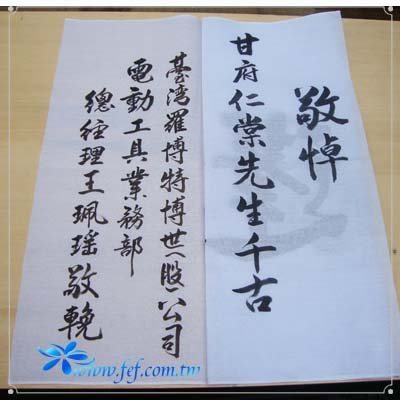 敬悼
甘府仁棠先生千古
臺灣羅博特博世(股)公司
電動工具業務部
總經理王珮瑤敬輓
www.fef.com.tw